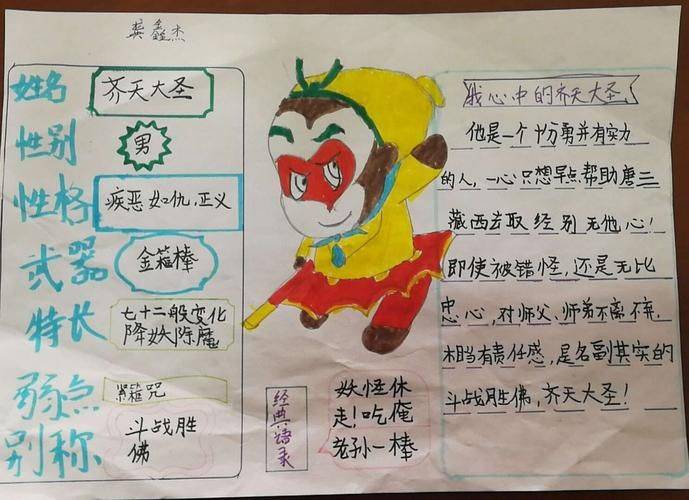 龚鑫杰
姓名 齐天大圣
性别 男
性格 疾恶如仇,正义
武器 金箍棒
特长 七十二般变化
降妖除魔
弱点 紧箍咒
别称 斗战胜
佛
经典语录
妖怪休
走!吃俺
老孙一棒
我心中的齐天大圣
他是一个十分勇并有实力
的人,一心只想早点帮助唐三
藏西去取经别无他心!
即使被错怪,还是无比
忠心,对师父、师弟不离不弃,
相当有责任感,是名副其实的
斗战胜佛,齐天大圣!